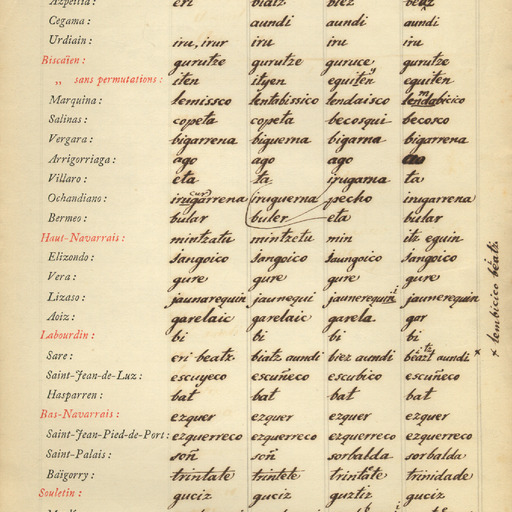 Azpeitia: eri biatz biez beatz
Cegama: aundi aundi aundi
Urdiain: iru, irur iru iru iru
Biscaïen: gurutze gurutze guruce gurutze
„ sans permutations: iten ityen eguiten eguiten
Marquina: lemissco lentabissico lendaisco
Salinas: copeta copeta becosqui becoko
Vergara: bigarrena biguerna bigarna bigarrena
Arrigorriaga: ago ago ago
Villaro: eta ta irugarna ta
Ochandiano: irugarrena iruguerna pecho irugarrena
Bermeo: bular buler eta bular
Haut-Navarrais: mintzatu mintzetu min itz eguin
Elizondo: sangoico sangoico Jaungoico sangoico
Vera: gure gure gure gure
Lizaso: jaunarequin jaunequi jaunerequin jaunerequin
Aoiz: garelaic garelaic garela gar
Labourdin: bi bi bi bi
Sare: eri beatz biatz aundi biez aundi aundi x
x lembicico beatz
Saint-Jean-de-Luz: escuyeco escuñeco escubico escuñeco
Hasparren: bat bat bat bat
Bas-Navarrais: ezquer ezquer ezquer ezquer
Saint-Jean-Pied-de-Port: ezquerreco ezquerreco ezquerreco ezquerreco
Saint-Palais: soñ soñ sorbalda sorbalda
Baïgorry: trintate trintete trintate trinidade
Souletin: guciz guciz guztiz guciz